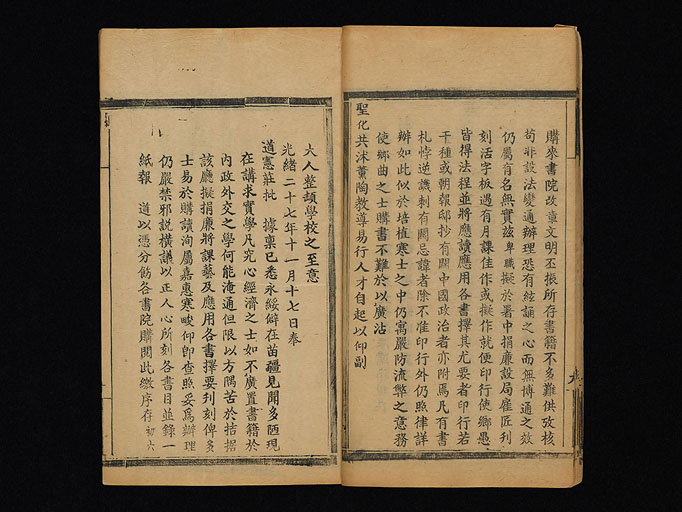 購來書院改章文明丕振所存書籍不多難供攷核
苟非設法變通辦理恐有絃誦之心而無博通之效
仍屬有名無實茲卑職擬於署中捐廉設局雇匠刋
刻活字板遇有月課佳作或擬作就便印行使鄉愚
皆得法程並將應讀應用各書擇其尤要者印行若
干種或朝報邸抄有關中國政治者亦附焉凡有書
札悖逆譏刺有關忌諱者除不准印行外仍照律詳
辦如此似於培植寒士之中仍寓嚴防流弊之意務
使鄉曲之士購書不難於以廣沾
聖化共沐薰陶教導易行人才自起以仰副
大人整頓學校之至意
光緒二十七年十一月十七日奉
道憲莊批 據稟已悉永綏僻在苗疆見聞多陋現
在講求實學凡究心經濟之士如不廣置書籍於
內政外交之學何能淹通但限以方隅苦於拮据
該廳擬捐廉將課藝及應用各書擇要刋刻俾多
士易於購讀洵屬嘉惠寒畯仰卽查照妥爲辦理
仍嚴禁邪說橫議以正人心所刻各書目並錄一
紙報 道以憑分飭各書院購閱此繳序存初六